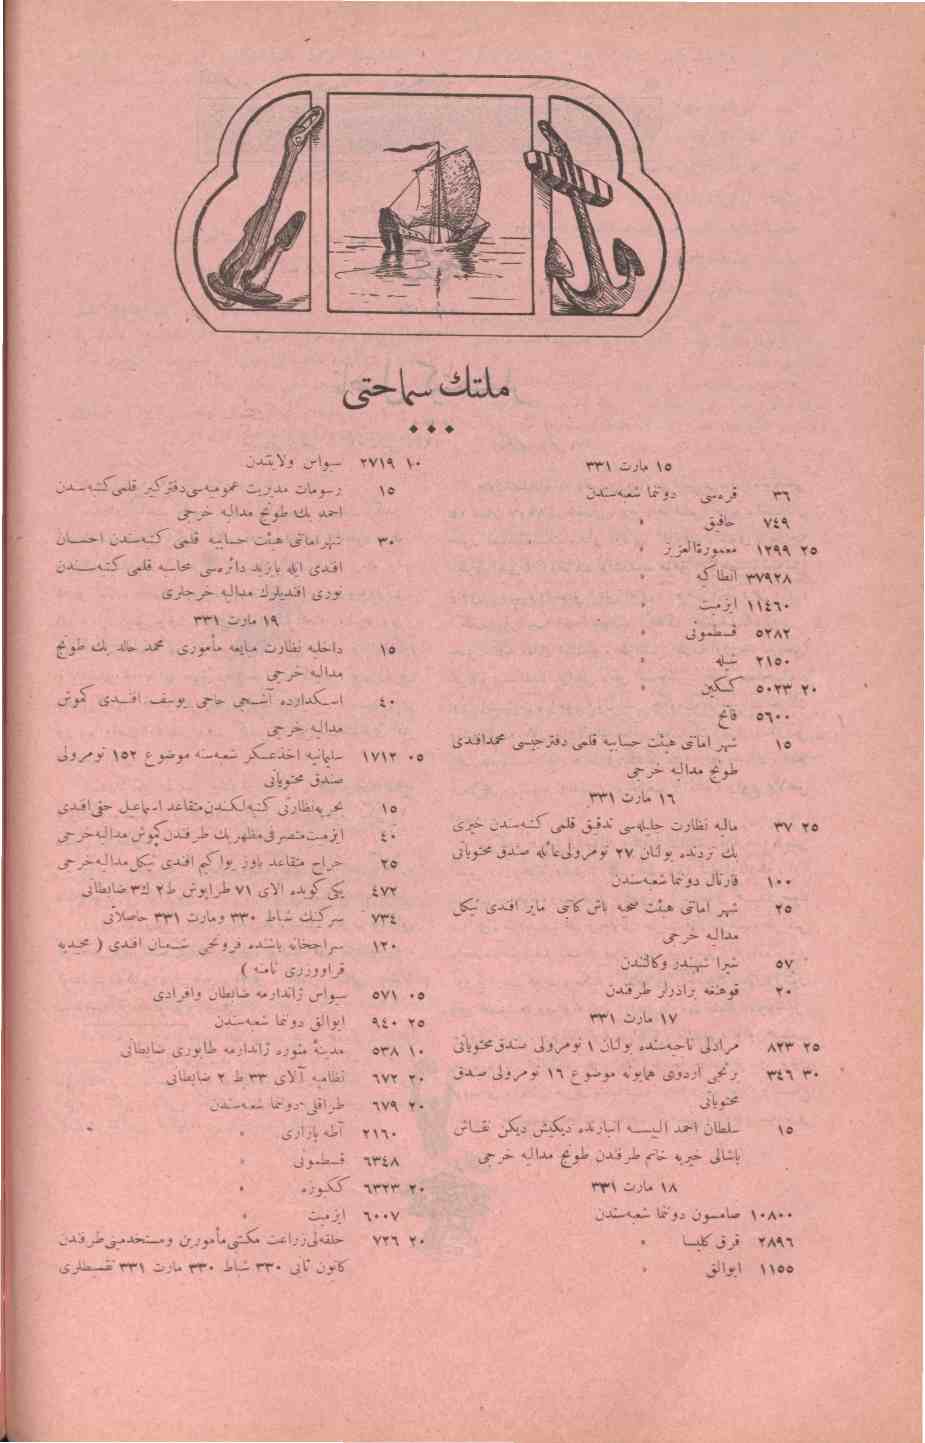 ملتك سماحتی
١٥ مارت ٣٣١
٣٦ قره‌سی دوننما شعبه‌سندن
٧٤٩ حافیق »
٢٥ ١٢٩٩ معمورة‌العزیز »
٣٧٩٢٨ انطاکیه »
١١٤٦٠ ازمیت »
٥٢٨٢ قسطمونی »
٢١٥٠ شیله »
٢٠ ٥٠٢٣ کسکین »
٥٦٠٠ فاتح
١٥ شهر امانتی هیئت حسابیه قلمی دفترجیسی محمدافندی
طونج مدالیه خرجی
١٦ مارت ٣٣١
٢٥ ٣٧ مالیه نظارت جلیله‌سی تدقیق قلمی کتبه‌سندن خیری
بك نزدنده بولنان ٢٧ نومرولی عائله صندق محتویاتی
١٠٠ قارتال دوننما شعبه‌سندن
٢٥ شهر امانتی هیئت صحیه باش کاتبی مایر افندی نیکل
مدالیه خرجی
٥٧ شیرا شهبندر وکالتندن
٢٠ قوهنقه برادرلر طرفندن
١٧ مارت ٣٣١
٢٥ ٨٢٣ مرادلی ناحیه‌سنده بولنان ١ نومرولی صندق محتویاتی
٣٠ ٣٤٦ برنجی اردوی همایونه موضوع ١٦ نومرولی صندق
محتویاتی
١٥ سلطان احمد البسه انبارنده دیکیش دیکن نقاش
پاشالی خیریه خانم طرفندن طونج مدالیه خرجی
١٨ مارت ٣٣١
١٠٨٠٠ صامسون دوننما شعبه‌سندن
٢٨٩٦ قرق کلیسا »
١١٥٥ ایوالق »
١٠ ٢٧١٩ سیواس ولایتندن
١٥ رسومات مدیریت عمومیه‌سی دفترکبیر قلمی کتبه‌سندن
احمد بك طونج مدالیه خرجی
٣٠ شهر امانتی هیئت حسابیه قلمی کتبه‌سندن احسان
افندی ایله بایزید دائره‌سی محاسبه قلمی کتبه‌سندن
نوری افندیلرك مدالیه خرجلری
١٩ مارت ٣٣١
١٥ داخلیه نظارت مبایعه مأموری محمد خالد بك طونج
مدالیه خرجی
٤٠ اسکدارده آشجی حاجی یوسف افندی کموش
مدالیه خرجی
٠٥ ١٧١٢ سلیمانیه اخذعسکر شعبه‌سنه موضوع ١٥٢ نومرولی
صندق محتویاتی
١٥ بحریه نظارتی کتبه‌لکندن متقاعد اسماعیل حقی افندی
٤٠ ازمیت متصرفی مظهر بك طرفندن کموش مدالیه خرجی
٢٥ جراح متقاعد یاور یواکیم افندی نیکل مدالیه خرجی
٤٧٢ یکی کویده الای ٧١ طرابوش ط٢ ك٣ ضابطانی
٧٣٤ سرکینك شباط ٣٣٠ ومارت ٣٣١ حاصلاتی
١٢٠ سراجخانه باشنده فرونجی شمبان افندی ( مجیدیه
قراووزری نامنه )
٠٥ ٥٧١ سیواس ژاندارمه ضابطان وافرادی
٢٥ ٩٤٠ ایوالق دوننما شعبه‌سندن
١٠ ٥٣٨ مدینهٔ منوره ژاندارمه طابوری ضابطانی
٢٠ ٦٧٢ نظامیه آلای ٣٣ ط ٢ ضابطانی
٢٠ ٦٧٩ طراقلی دوننما شعبه‌سندن
٢١٦٠ آطه بازاری »
٦٣٤٨ قسطمونی »
٢٠ ٦٣٢٣ ککبوزه »
٦٠٠٧ ازمیت »
٢٠ ٧٢٦ حلقه‌لی زراعت مکتبی مأمورین ومستخدمینی طرفندن
کانون ثانی ٣٣٠ شباط ٣٣٠ مارت ٣٣١ تقسیطلری